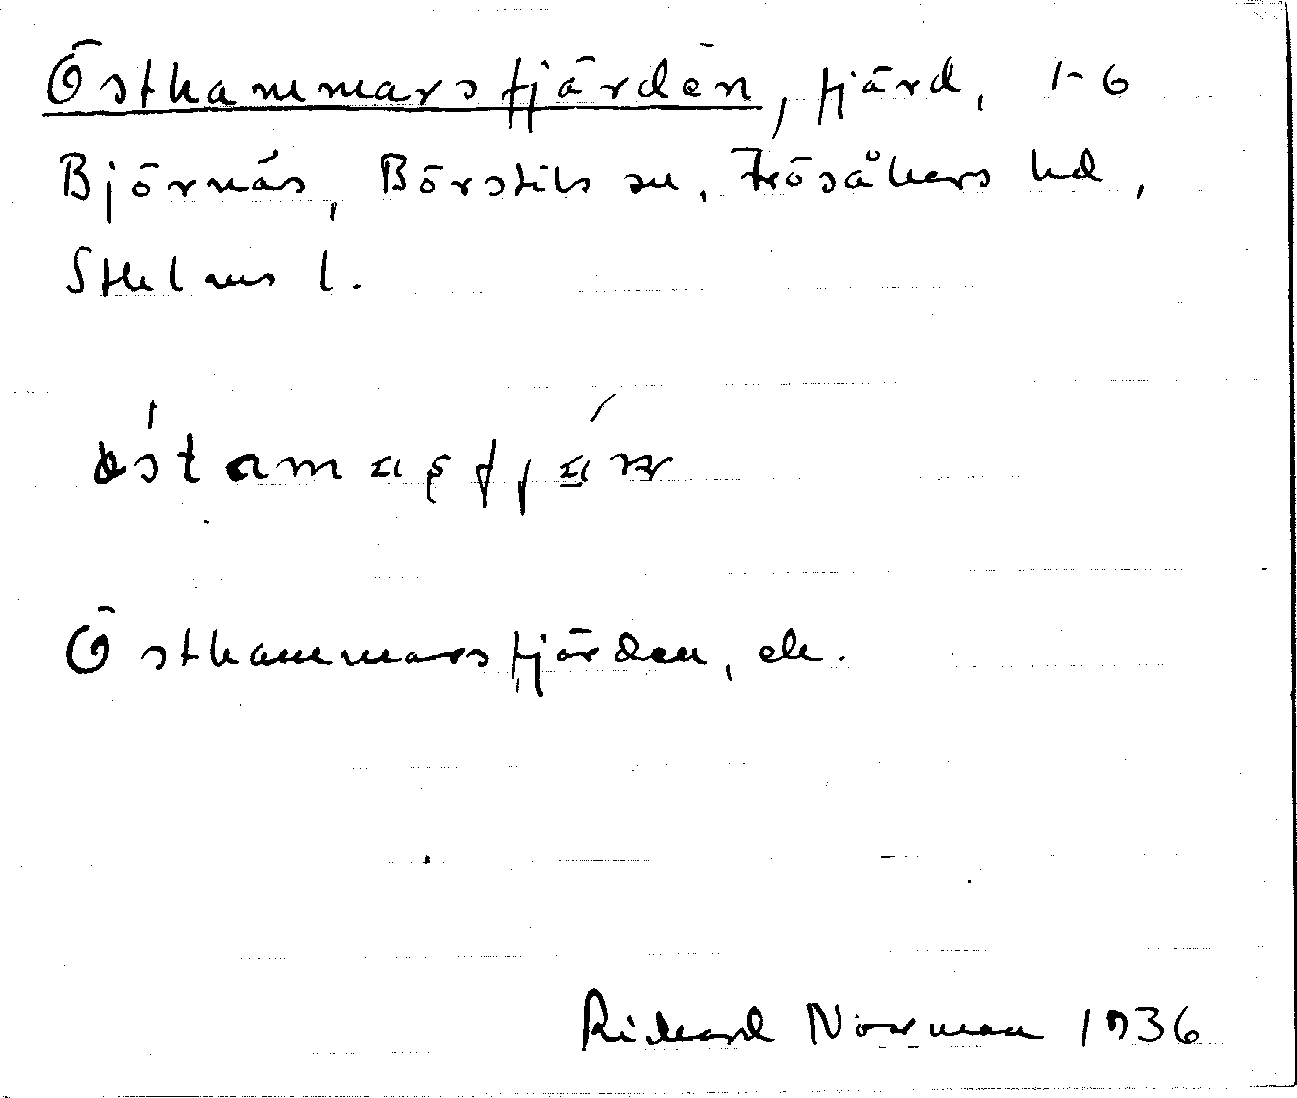 Östhammarsfjärden, fjärd, 1-6
Björnäs, Börstils sn, Frösåkers hd,
Sthlms l.
Östhammarsfjärden, ek.
Richard Norman 1936